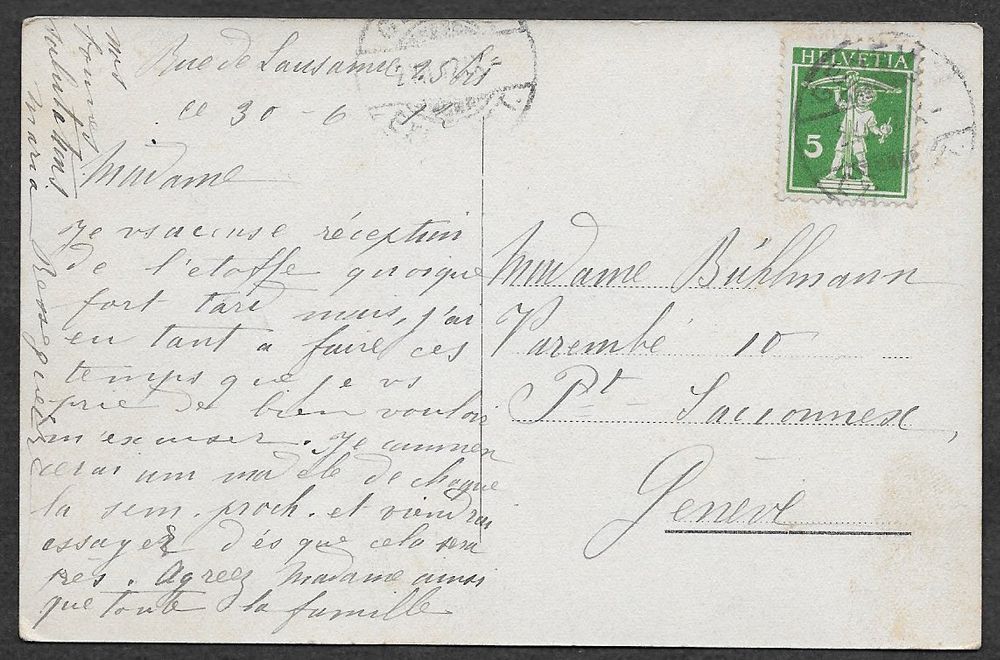 Rue de Lausanne
ce 30-6
Madame
Je vs accuse réception
de l'étoffe quoique
fort tard mais, j'ai
eu tant a faire ces
temps que je vs
prie de bien vouloir
m'excuser. Je commen
cerai un modèle de chaque
la sem. proch. et viendrai
essayer dés que cela sera
près. Agreez Madame ainsi
que toute la famille
mes
bonnes
salutations
Maria
HELVETIA
5
Madame Bühlmann
Varembé 10
Pt Saconnex,
Genève